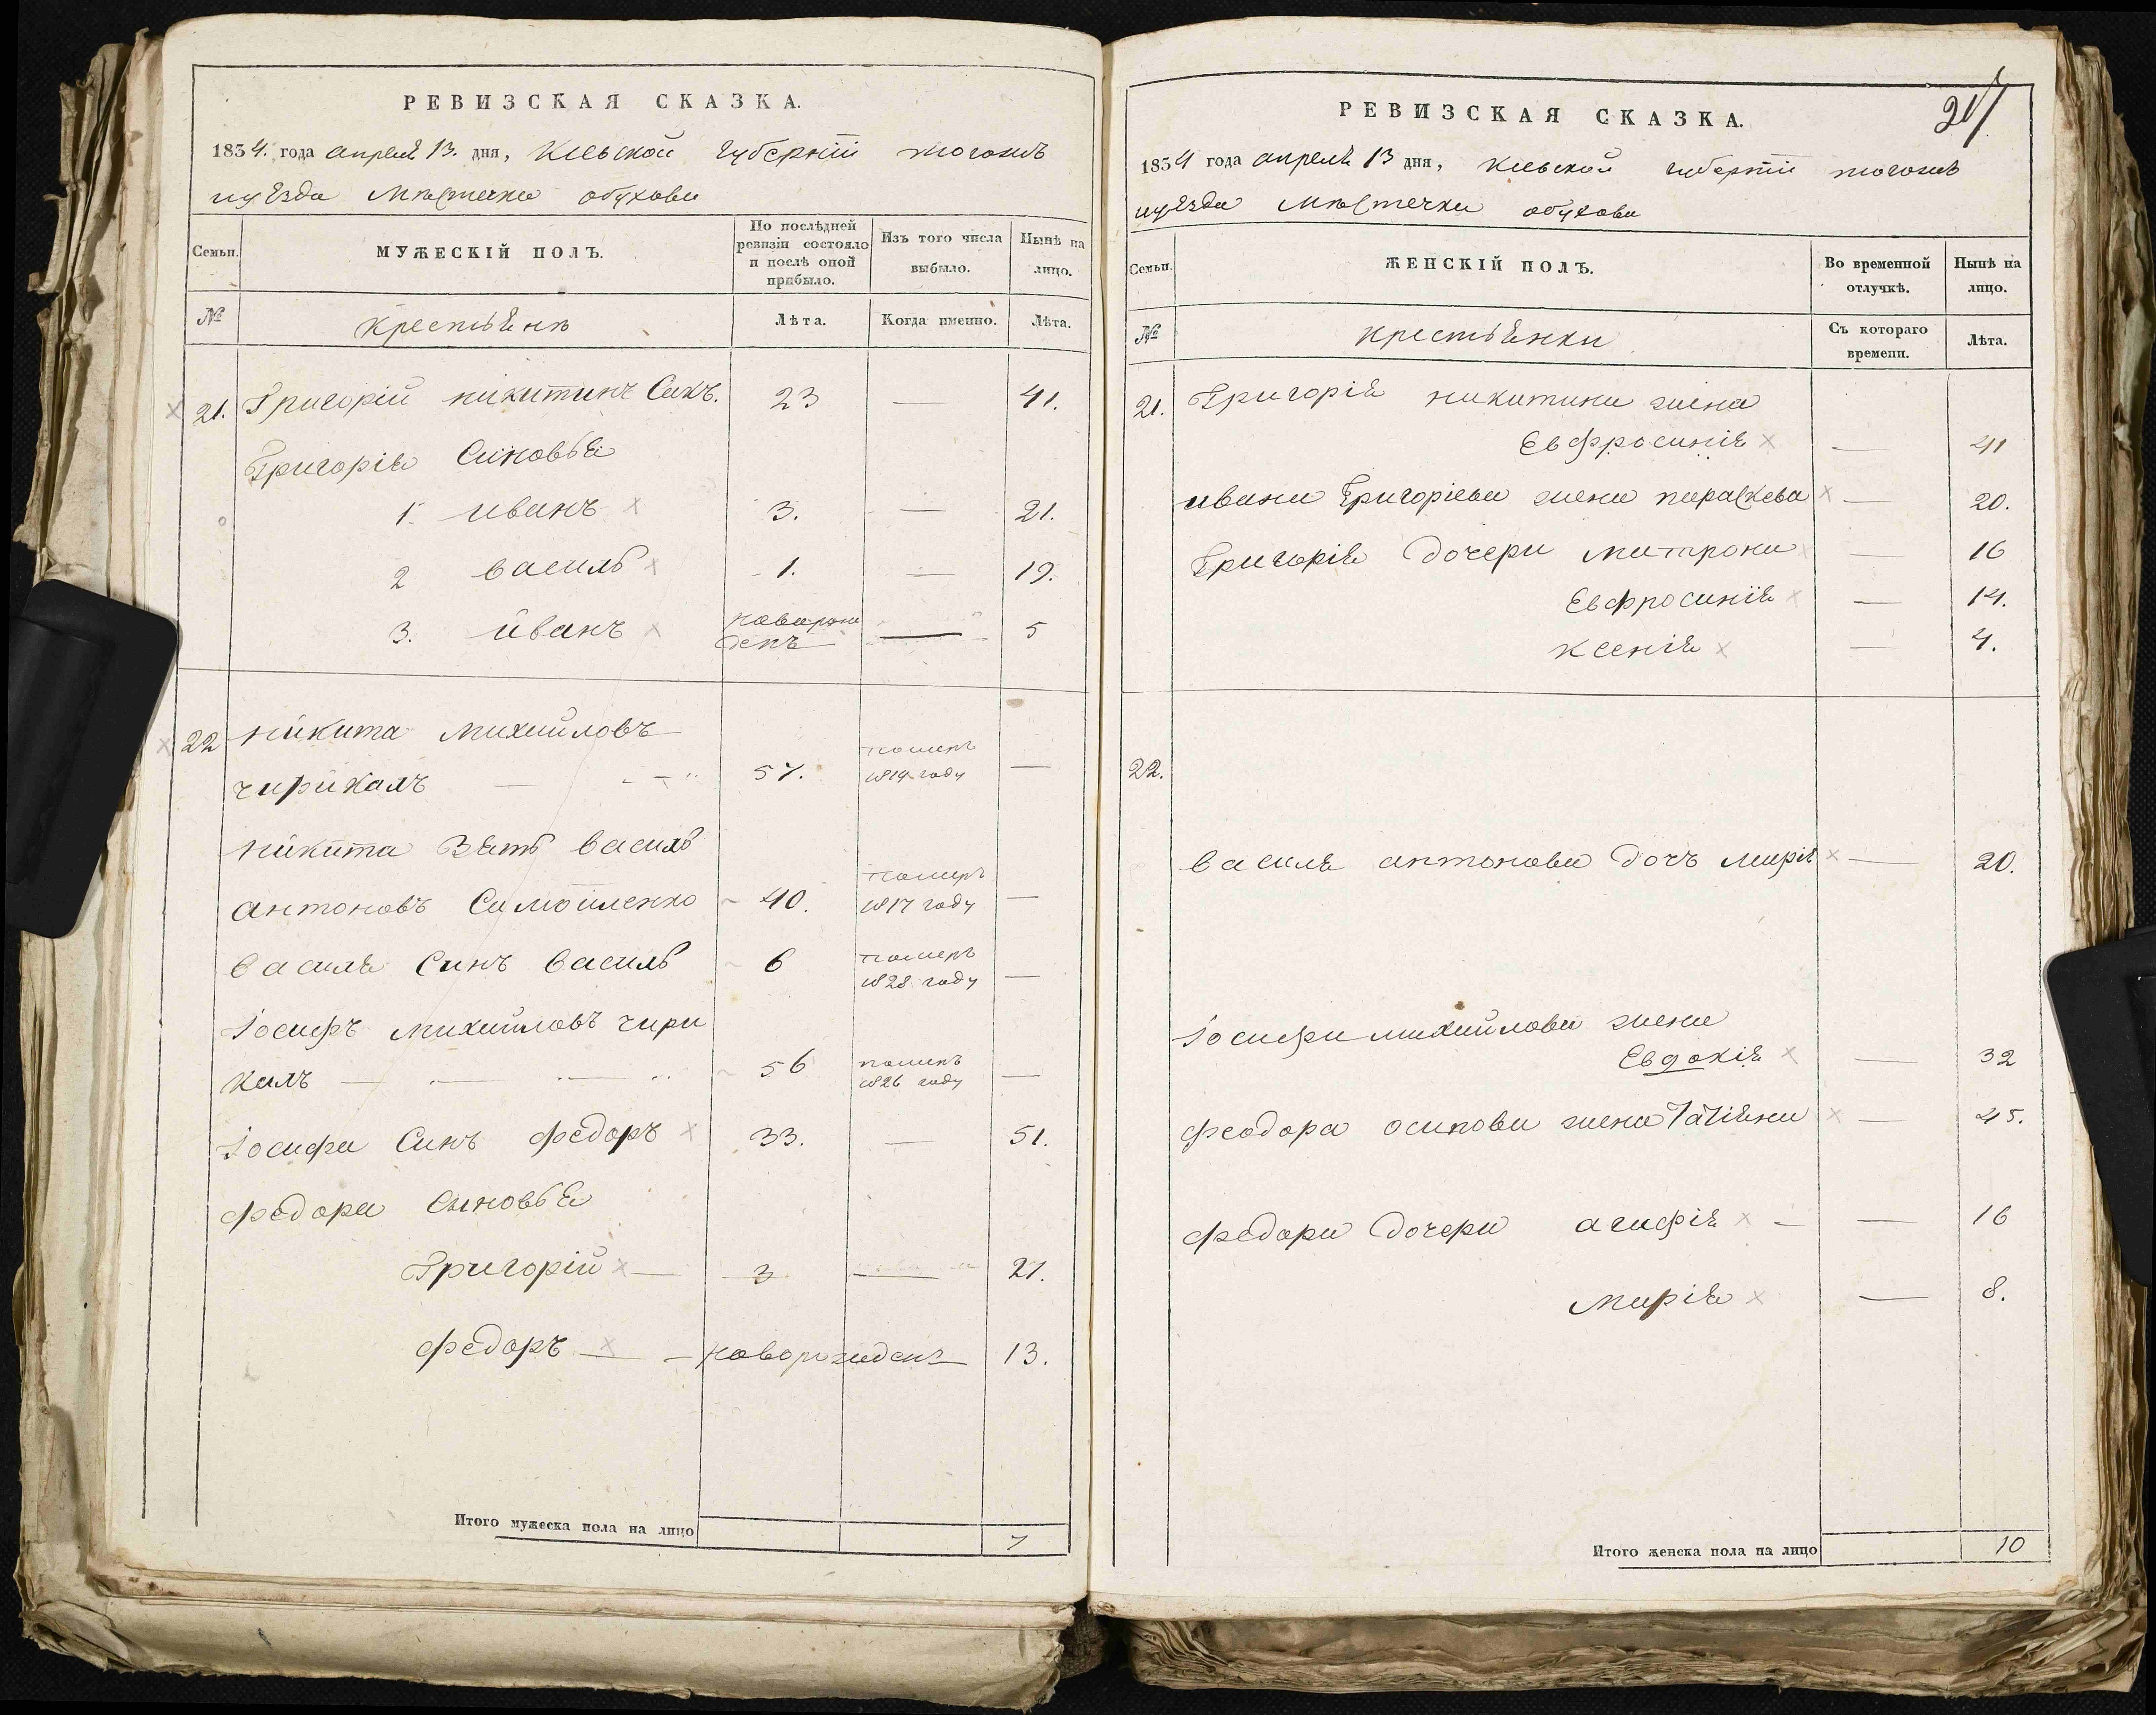 РЕВИЗСКАЯ СКАЗКА.
1834. года апреля 13. дня, Киевской губернiи тогожъ
иуѣзда Мѣстечка обухова
Семьи. МУЖЕСКІЙ ПОЛЪ. По послѣдней ревизіи состояло и послѣ оной прибыло. Изъ того числа выбыло. Нынѣ на лицо.
№ Крестьяне Лѣта. Когда именно. Лѣта.
21. Григорій никитинъ Синъ. 23 — 41.
Григорія Синовья
1. иванъ 3. — 21.
2 василь 1. — 19.
3. иванъ новорож
денъ — 5
22 никита михайловъ
чирикалъ 57. померъ 1819 году —
никита Зять василь
антоновъ Самойленко 40. померъ 1817 году —
василя Синъ василь 6 померъ 1828 году —
Іосифъ михайловъ чири
калъ — 56 померъ 1826 году —
Іосифа Синъ федоръ 33. — 51.
федора Сыновья
Григорій — 3 — 21.
федоръ — новорожденъ 13.
Итого мужеска пола на лицо 7
217
РЕВИЗСКАЯ СКАЗКА.
1834 года апреля 13 дня, Киевской губернiи тогожъ
иуѣзда Мѣстечка обухова
Семьи. ЖЕНСКІЙ ПОЛЪ. Во временной отлучкѣ. Нынѣ на лицо.
№ крестьянки Съ котораго времени. Лѣта.
21. Григорія никитина жена
Евфросинія — 41
ивана Григоріева жена параскева — 20.
Григорія дочери матрона — 16
Евфросинія — 14.
ксенія — 4.
22.
василя антонова дочъ марія — 20.
Іосифа михайлова жена
Евдокія — 32
феодора осипова жена Татіяна — 45.
федора дочери агафія — 16
марія — 8.
Итого женска пола на лицо 10